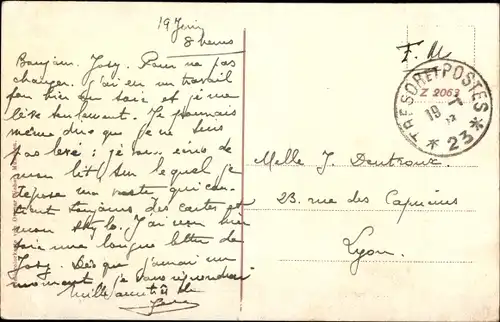 19 Juin
8 heures
Bonjour Josy. Pour ne pas
changer. J'ai eu un travail
fou hier au soir et je me
lève seulement. Je pourrais
même dire que je ne suis
pas levé : j'ai
mon lit sur lequel je
repose un veste qui con-
tient toujours des cartes et
mon stylo. J'ai reçu hier
soir une longue lettre de
Josy. Dès que j'aurai un
moment, je vous répondrai
Mille amitiés de
F. M
Z 2063
TRESOR ET POSTES
19
* 23 *
Melle J.
23. rue des Capucins
Lyon.